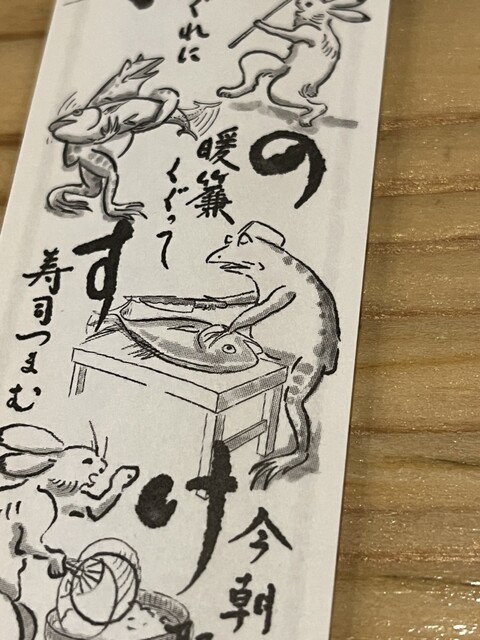 のすけ
ぐれに
暖簾
くぐって
寿司つまむ
今朝